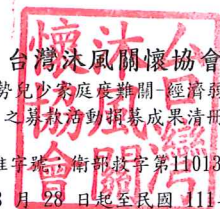 台灣沐風關懷協會
勢兒少家庭度難關-經濟弱
之募款活動捐募成果清冊
准字號:衛部救字第11013
月 28 日起至民國 111.
台灣
沐風關
懷協會